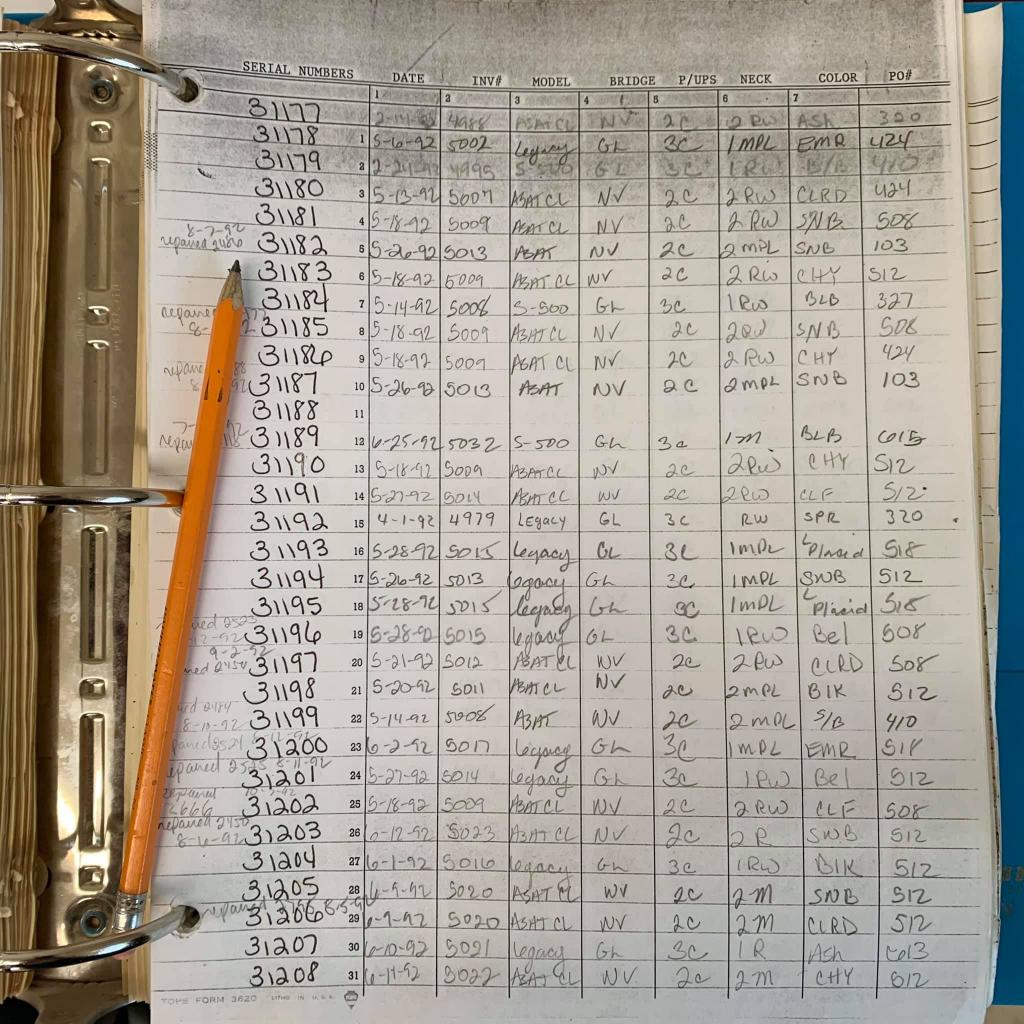 SERIAL NUMBERS DATE INV# MODEL BRIDGE P/UPS NECK COLOR PO#
1 2 3 4 5 6 7
31177 4988 ASAT CL NV 2C 2 RW ASh 320
31178 1 5-6-92 5002 Legacy GL 3C 1MPL EMR 424
31179 2 2-24-92 4995 S-500 GL 3C 1RW 410
31180 3 5-13-92 5007 ASAT CL NV 2C 2 RW CLRD 424
31181 4 5-18-92 5009 ASAT CL NV 2C 2 RW SNB 508
8-7-92
repaired 31182 5 5-26-92 5013 ASAT NV 2C 2 MPL SNB 103
31183 6 5-18-92 5009 ASAT CL NV 2C 2 RW CHY 512
31184 7 5-14-92 5008 S-500 GL 3C 1RW BLB 327
31185 8 5-18-92 5009 ASAT CL NV 2C 2RW SNB 508
31186 9 5-18-92 5009 ASAT CL NV 2C 2 RW CHY 424
31187 10 5-26-92 5013 ASAT NV 2C 2 MPL SNB 103
31188 11
31189 12 6-25-92 5032 S-500 GL 3C 1M BLB 615
31190 13 5-18-92 5009 ASAT CL NV 2C 2RW CHY 512
31191 14 5-27-92 5014 ASAT CL NV 2C 2RW CLF 512
31192 15 4-1-92 4979 Legacy GL 3C RW SPR 320
31193 16 5-28-92 5015 Legacy GL 3C 1MPL L Placid 518
31194 17 5-26-92 5013 Legacy GL 3C 1MPL SNB 512
31195 18 5-28-92 5015 Legacy GL 3C 1MPL L Placid 518
31196 19 5-28-92 5015 Legacy GL 3C 1RW Bel 508
9-2-92
31197 20 5-21-92 5012 ASAT CL NV 2C 2 RW CLRD 508
31198 21 5-20-92 5011 ASAT CL NV 2C 2 MPL BlK 512
8-10-92 31199 22 5-14-92 5008 ASAT NV 2C 2 MPL S/B 410
31200 23 6-2-92 5017 Legacy GL 3C 1MPL EMR 518
repaired 2523 8-11-92
31201 24 5-27-92 5014 Legacy GL 3C 1RW Bel 512
repaired
31202 25 5-18-92 5009 ASAT CL NV 2C 2 RW CLF 508
repaired 2450
8-6-92 31203 26 6-12-92 5023 ASAT CL NV 2C 2 R SNB 512
31204 27 6-1-92 5016 Legacy GL 3C 1RW BlK 512
31205 28 6-9-92 5020 ASAT CL NV 2C 2 M SNB 512
repaired 8-5-92
31206 29 6-9-92 5020 ASAT CL NV 2C 2 M CLRD 512
31207 30 6-10-92 5021 Legacy GL 3C 1 R ASh 613
31208 31 6-11-92 5022 ASAT CL NV 2C 2 M CHY 512
TOPS FORM 3620 LITHO IN U.S.A.